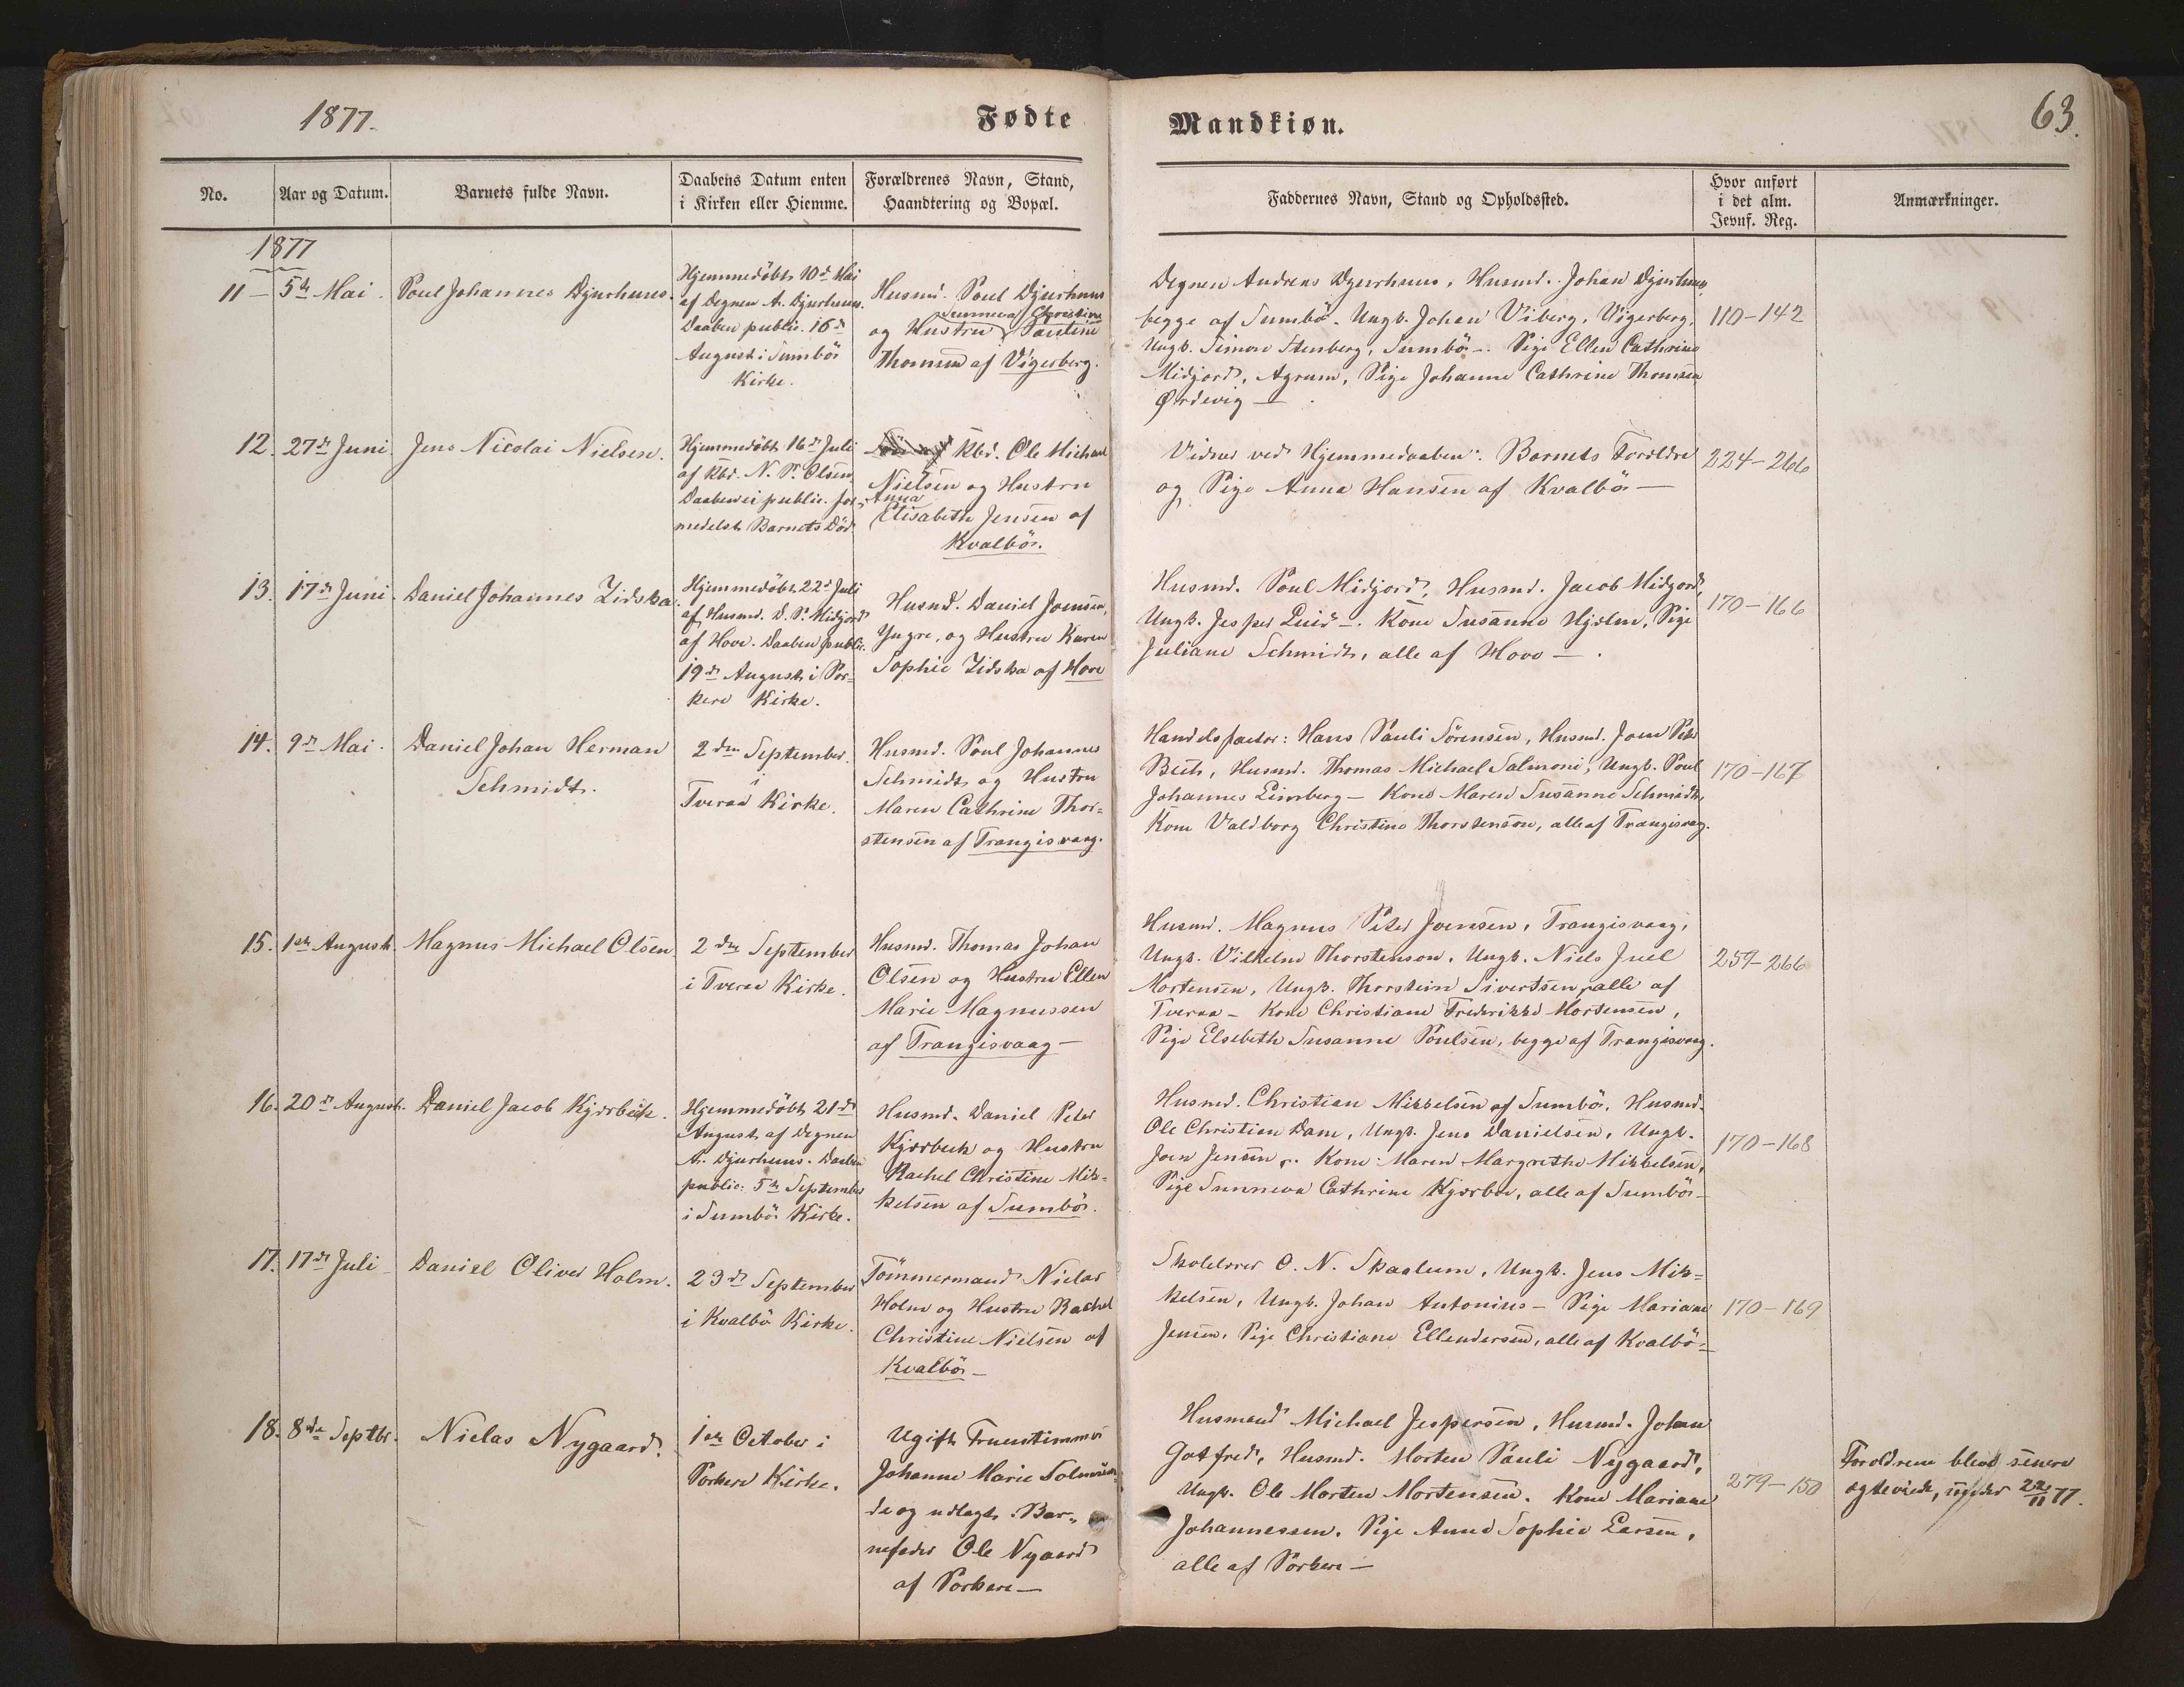 1877.
Fødte
Mandkiøn.
63.
No.
Aar og Datum.
Barnets fulde Navn.
Daabens Datum enten
i Kirken eller Hiemme.
Forældrenes Navn, Stand,
Haandtering og Bopæl.
Faddernes Navn, Stand og Opholdssted.
Hvor anført
i det alm.
Jevnf. Reg.
Anmærkninger.
1877
11 — 5te Mai.
Poul Johannes Djurhuus.
Hjemmedöbt 10de Mai
af Degnen A. Djurhuus.
Daaben public. 16de
August i Sumbö
Kirke.
Husmd. Poul Djurhuus
Sunneva Christine
og Hustru Pauline
Thomsen af Vigerberg.
Degnen Andreas Djurhuus, Husmd. Johan Djurhuus,
begge af Sumbö. Ungk. Johan Viberg, Vigerberg,
Ungk. Simon Stenberg, Sumbö —. Pige Ellen Cathrine
Midjord, Agrum, Pige Johanne Cathrine Thomsen
Ørdevig —.
110-142
12. 27de Juni
Jens Nicolai Nielsen.
Hjemmedöbt 16de Juli
af Kbd. N. P. Olsen
Daaben ei public. for-
medelst Barnets Död
Kbd. Ole Michael
Nielsen og Hustru
Anna
Elisabeth Jensen af
Kvalbö.
Vidner ved Hjemmedaaben: Barnets Forældre
og Pige Anna Hansen af Kvalbö —
224-266
13. 17de Juni.
Daniel Johannes Zidska.
Hjemmedöbt 22de Juli
af Husmd. D. P. Midjord
af Hove. Daaben public.
19de August i Por=
kere Kirke.
Husmd. Daniel Joensen,
Yngre, og Hustru Karen
Sophie Zidska af Hove
Husmd. Poul Midjord, Husmd. Jacob Midjord,
Ungk. Jesper Luid —. Kone Susanne Hjelm, Pige
Juliane Schmidt, alle af Hove —.
170-166
14. 9de Mai.
Daniel Johan Herman
Schmidt.
2den September
i
Tveraa Kirke.
Husmd. Poul Johannes
Schmidt og Hustru
Maren Cathrine Thor=
stensen af Trangisvaag.
Handelsfactor: Hans Pauli Sörensen, Husmd. Joen Peter
Bech, Husmd. Thomas Michael Salmoni, Ungk. Poul
Johannes Limberg — Kone Maren Susanne Schmidt,
Kone Valdborg Christine Thorstenson, alle af Trangisvaag.
170-167
15. 1ste August.
Magnus Michael Olsen
2den September
i Tveraa Kirke.
Husmd. Thomas Johan
Olsen og Hustru Ellen
Marie Magnussen
af Trangisvaag —
Husmd. Magnus Peter Joensen, Trangisvaag,
Ungk. Vilhelm Thorstenson, Ungk. Niels Juel
Mortensen, Ungk. Thorstein Sivertsen, alle af
Tveraa — Kone Christiane Frederikke Mortensen,
Pige Elsebeth Susanne Poulsen, begge af Trangisvaag.
259-266
16. 20de August.
Daniel Jacob Kjærbeck.
Hjemmedöbt 21de
August af Degnen
A. Djurhuus. Daaben
public. 5te September
i Sumbö Kirke.
Husmd. Daniel Peter
Kjærbeck og Hustru
Rachel Christine Mik=
kelsen af Sumbö.
Husmd. Christian Mikkelsen af Sumbö, Husmd.
Ole Christian Dam, Ungk. Jens Danielsen, Ungk.
Joen Jensen. Kone: Maren Margrethe Mikkelsen,
Pige Sunneva Cathrine Kjærbo, alle af Sumbö —
170-168
17. 17de Juli
Daniel Oliver Holm.
23de September
i Kvalbö Kirke.
Tömmermand Niclas
Holm og Hustru Rachel
Christine Nielsen af
Kvalbö —
Skolelærer O. N. Skaalum, Ungk. Jens Mik=
kelsen, Ungk. Johan Antonius — Pige Mariane
Jensen, Pige Christiane Ellendersen, alle af Kvalbö —
170-169
18. 8de Septbr.
Niclas Nygaard.
1ste October i
Porkere Kirke.
Ugift Fruentimmer
Johanne Marie
de og udlagt Bar=
nefader Ole Nygaard
af Porkere —
Husmand Michael Jespersen, Husmd. Johan
Gotfred, Husmd. Morten Pauli Nygaard,
Ungk. Ole Morten Mortensen. Kone Mariane
Johannessen. Pige Anna Sophie Larsen,
alle af Porkere —
279-150
Forældrene bleve senere
ægteviede, 22/11 77.